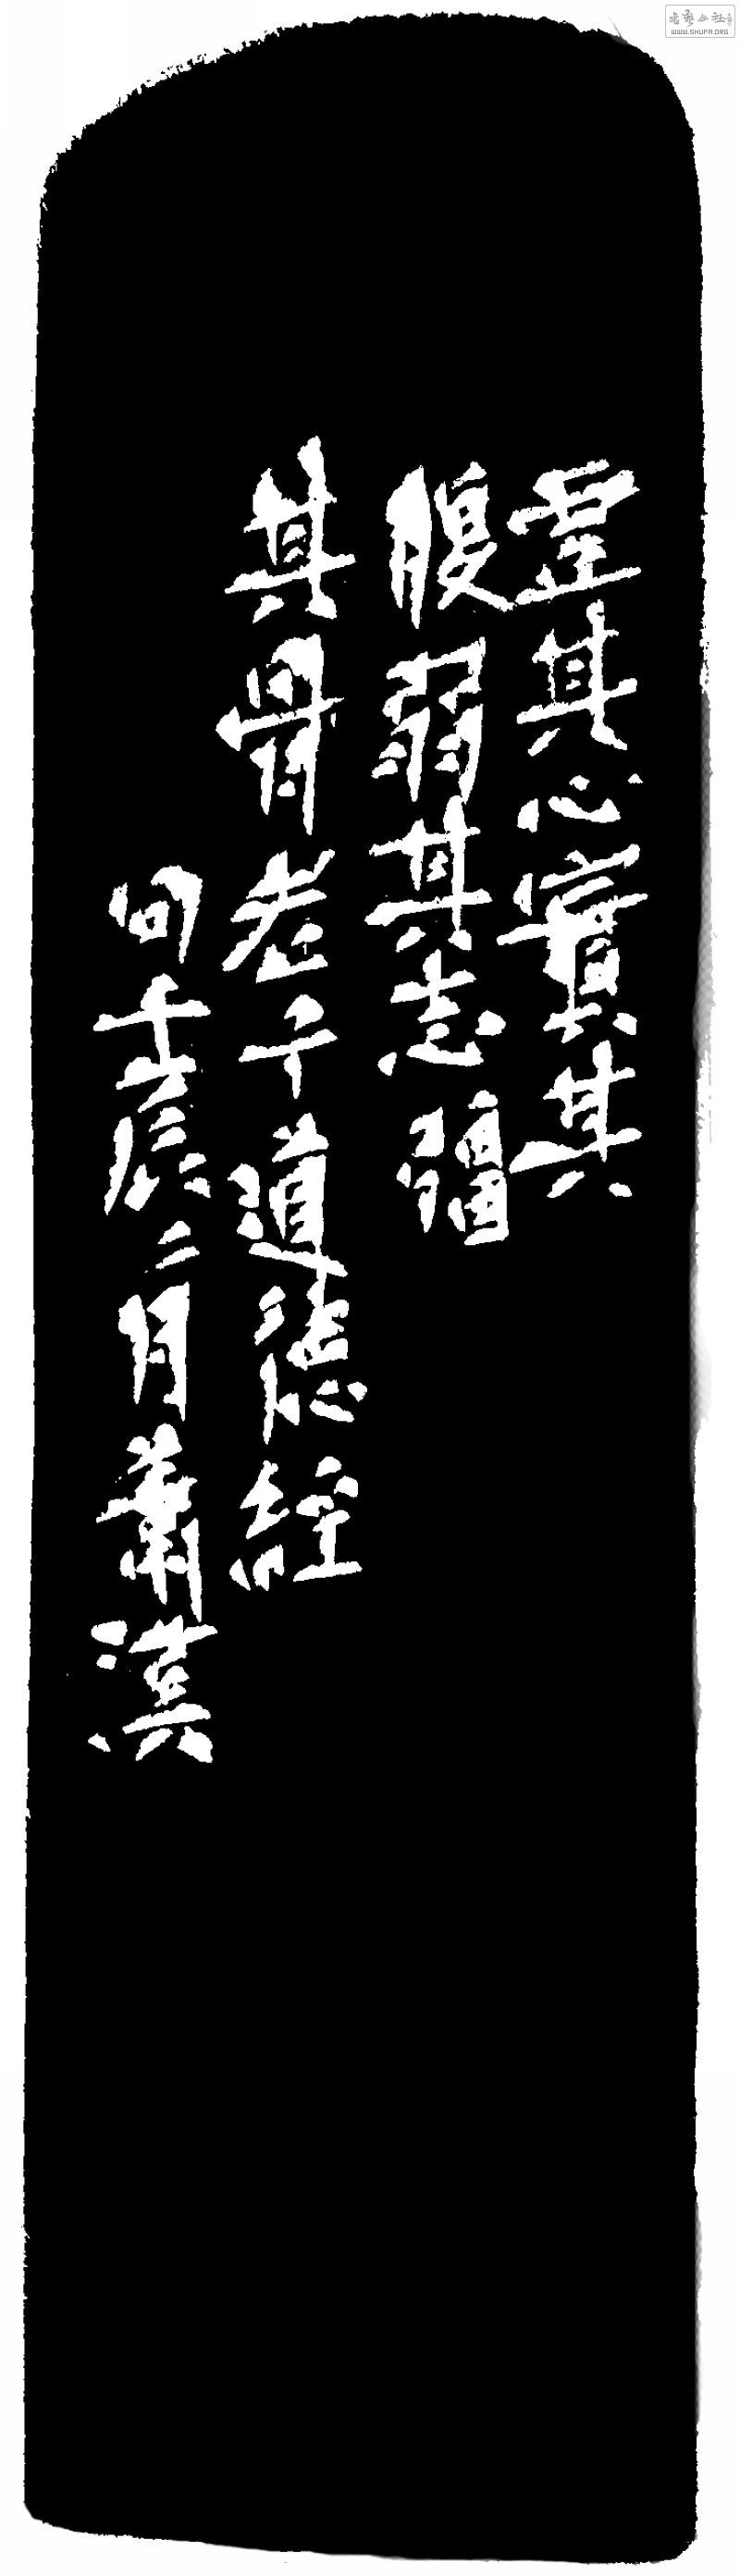 虛其心實其
腹弱其志强
其骨老子道德經
句壬辰二月蕭漢
WWW.SHUFA.ORG